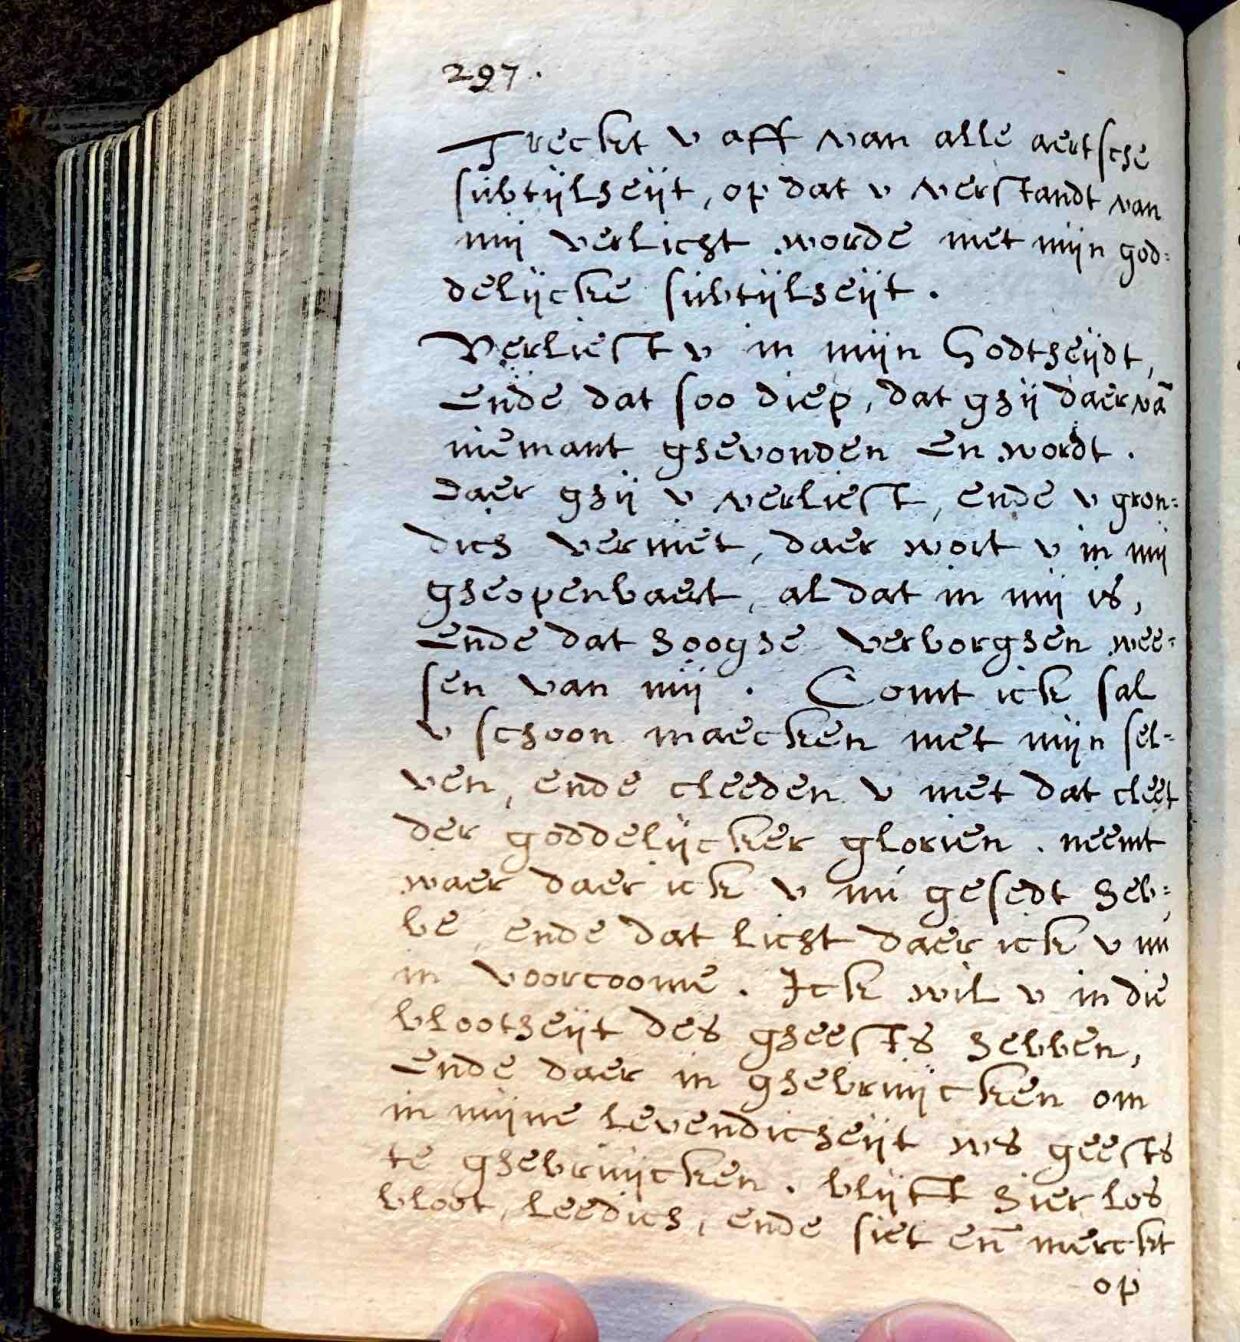 297.
Treckt v aff van alle aertsche
subtijlheijt, op dat v verstandt van
mij verlicht worde met mijn god=
delijcke subtijlheijt.
Verliest v in mijn Godtheijdt,
Ende dat soo diep, dat ghij daer vā
niemant ghevonden En wordt.
Daer ghij v verliest, ende v gron=
dich verniet, daer wort v in mij
gheopenbaert, al dat in mij is,
Ende dat hooghe verborghen wee=
sen van mij. Comt ick sal
v schoon maecken met mijn sel=
ven, ende cleeden v met dat cleet
der goddelijcker glorien. neemt
waer daer ick v nu gesedt heb=
be, ende dat licht daer ick v nu
in voorcoome. Ick wil v in die
blootheijt des gheests hebben,
Ende daer in ghebruijcken om
in mijne levendicheijt vvs geests
te ghebruijcken. blijft hier los
bloot, leedich, ende siet en̄ merckt
op